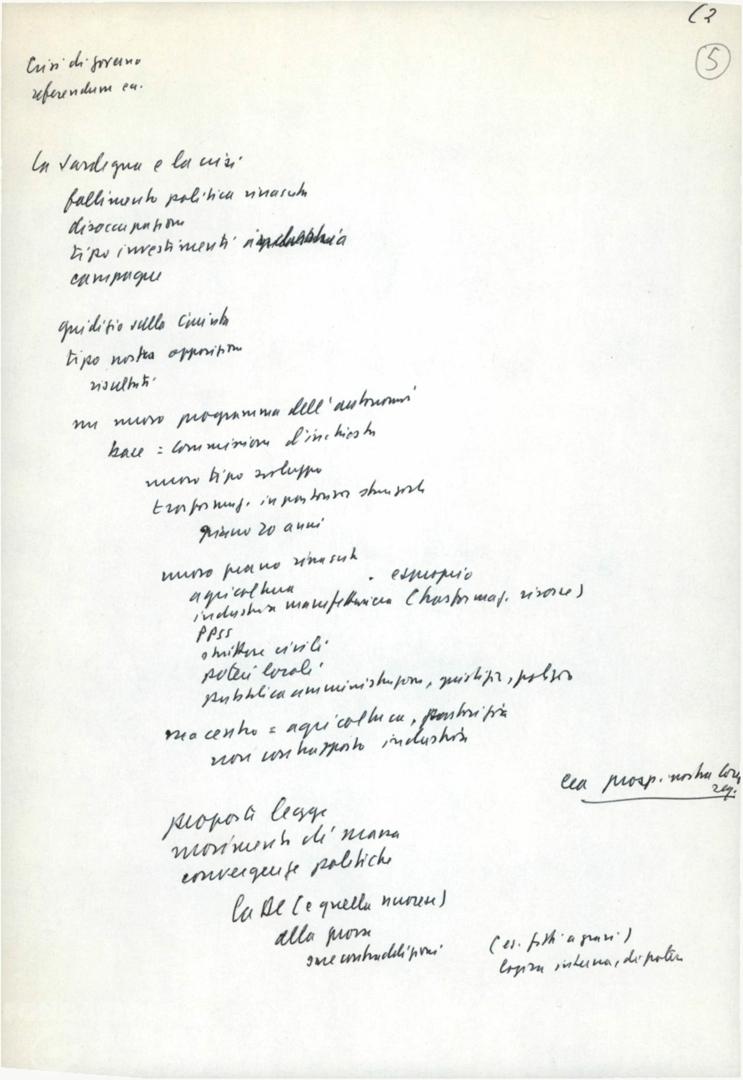 (2
5
Crisi di governo
referendum ecc.
la Sardegna e la crisi
fallimento politica rinascita
disoccupazione
tipo investimenti industria
campagne
giudizio sulla Giunta
tipo nostra opposizione
risultati
un nuovo programma dell'autonomia
base = commissione d'inchiesta
nuovo tipo sviluppo
trasformaz. in pastorizia
piano 20 anni
nuovo piano rinascita
agricoltura . esproprio
industria manifatturiera (trasformaz. risorse)
PPSS
strutture civili
poteri locali
pubblica amministrazione, giustizia, polizia
ma centro = agricoltura, pastorizia
non contrapposto industria
prosp. nostra
reg.
proposte legge
movimenti di massa
convergenze politiche
la DC (e quella nuorese)
alla prova
sue contraddizioni
(es. fitti agrari)
logica interna, di potere